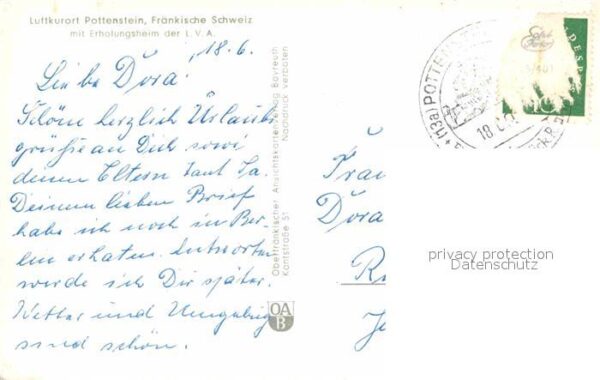 Luftkurort Pottenstein, Fränkische Schweiz
mit Erholungsheim der L.V.A.
18.6.
Liebe Dora!
Schöne herzlich Urlaubs
grüße an Dich sowi
deinen Eltern
Deinen lieben Brief
habe ich noch in Ber-
lin erhalten. Antworten
werde ich Dir später.
Wetter und Umgebung
sind schön.
Oberfränkischer Ansichtskartenverlag Bayreuth
Kantstraße 51 Nachdruck verboten
OA
B
(13a) POTTENST
18.6.
Frau
Dora
privacy protection
Datenschutz